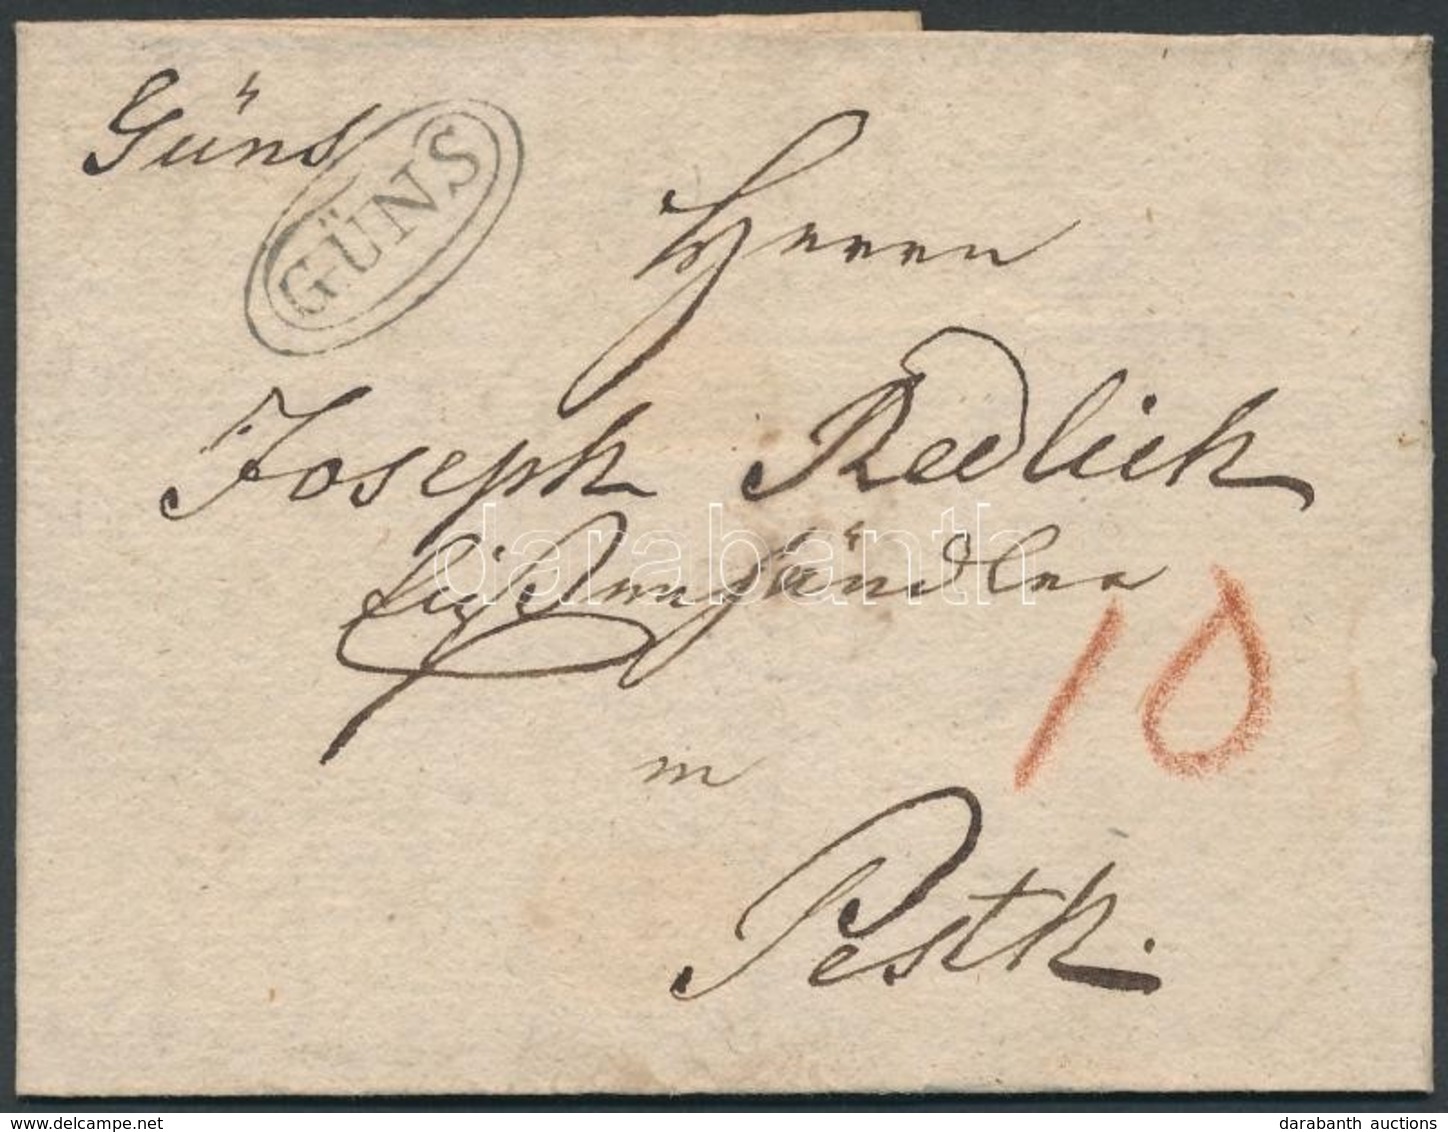 Güns
GÜNS
Herrn
Joseph Redlich
händler
10
in
Pesth.
darabanth
delcampe.net
darabanth auctions